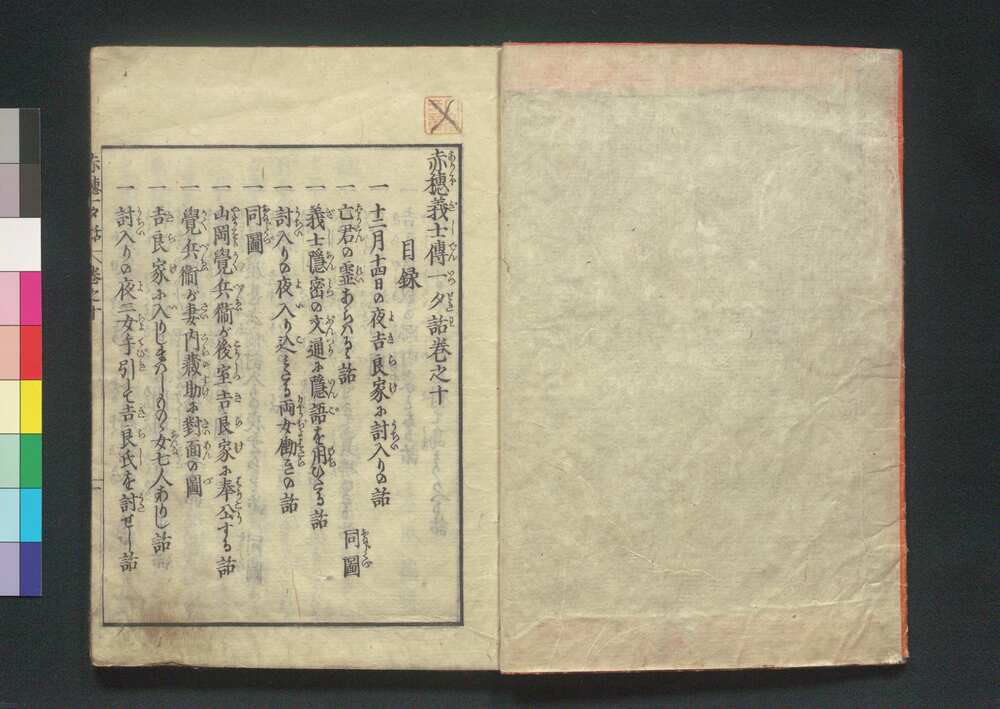 赤穂義士傳一夕話巻之十
目録
一 十二月十四日の夜吉良家に討入りの話
一 亡君の霊あらハるゝ話 同圖
一 義士隠密の文通に隠語を用ひたる話
一 討入りの夜入り込みたる両女働きの話
一 同圖
一 山岡覺兵衞が後室吉良家に奉公する話
一 覺兵衞が妻内蔵助に對面の圖
一 吉良家に入りしまハしものゝ女七人ありし話
一 討入りの夜二女手引して吉良氏を討せし話